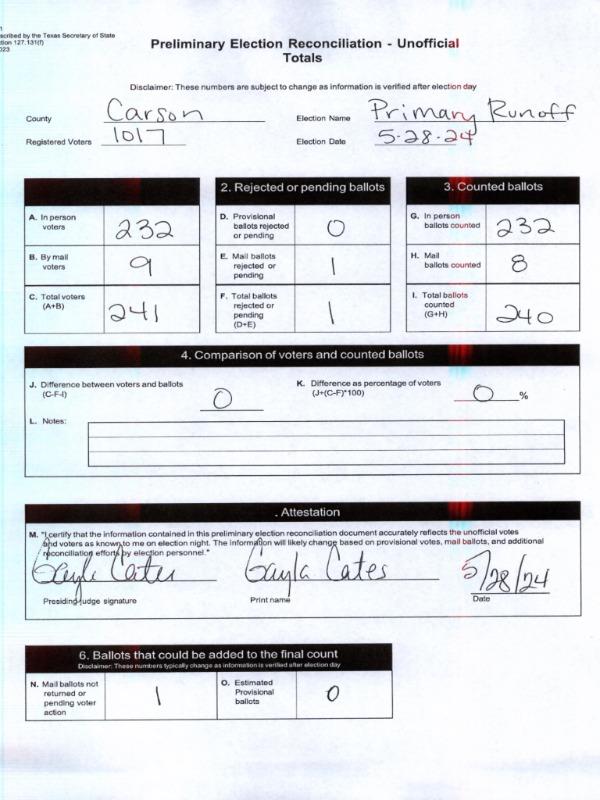 scribed by the Texas Secretary of State
tion 127.131(f)
023
Preliminary Election Reconciliation - Unofficial
Totals
Disclaimer: These numbers are subject to change as information is verified after election day
County Carson Election Name Primary Runoff
Registered Voters 1017 Election Date 5-28-24
2. Rejected or pending ballots 3. Counted ballots
A. In person voters 232 D. Provisional ballots rejected or pending 0 G. In person ballots counted 232
B. By mail voters 9 E. Mail ballots rejected or pending 1 H. Mail ballots counted 8
C. Total voters (A+B) 241 F. Total ballots rejected or pending (D+E) 1 I. Total ballots counted (G+H) 240
4. Comparison of voters and counted ballots
J. Difference between voters and ballots (C-F-I) 0 K. Difference as percentage of voters (J÷(C-F)*100) 0 %
L. Notes:
. Attestation
M. "I certify that the information contained in this preliminary election reconciliation document accurately reflects the unofficial votes
and voters as known to me on election night. The information will likely change based on provisional votes, mail ballots, and additional
reconciliation efforts by election personnel."
Gayla Cates Gayla Cates 5/28/24
Presiding judge signature Print name Date
6. Ballots that could be added to the final count
Disclaimer: These numbers typically change as information is verified after election day
N. Mail ballots not returned or pending voter action 1 O. Estimated Provisional ballots 0